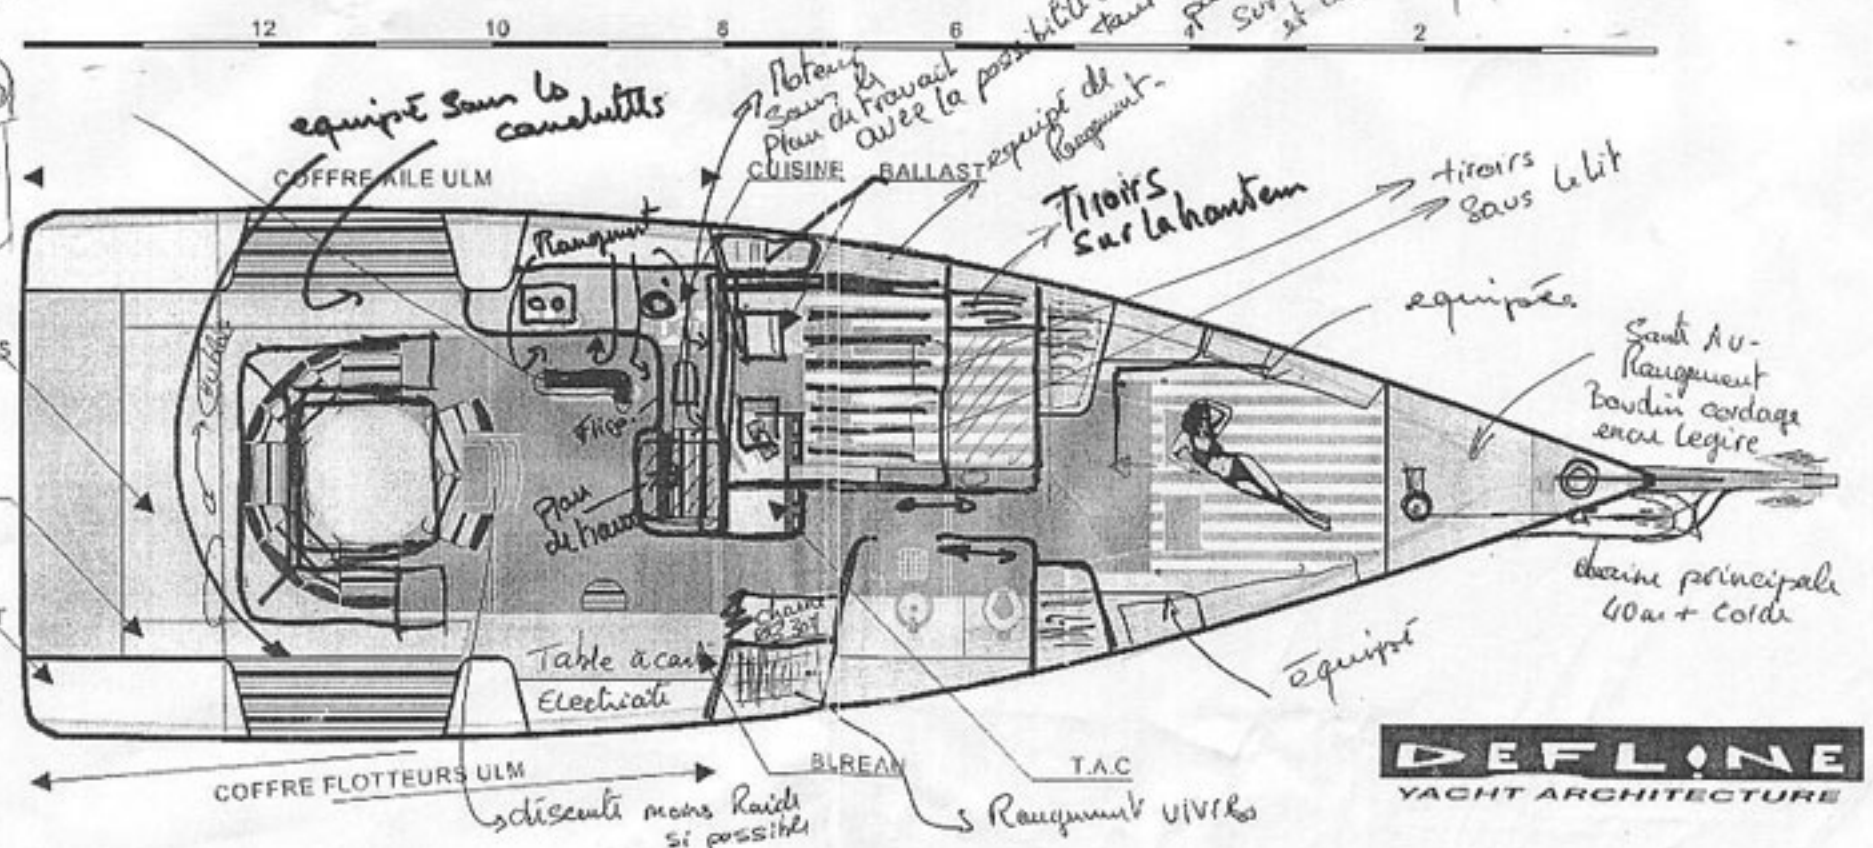 12 10 8 6 4 2
equipé sous la
couchettes
Moteur
sous le
plan de travail
avec la possibilité
equipé de
Rangement-
COFFRE AILE ULM
CUISINE
BALLAST
Tiroirs
sur la hauteur
tiroirs
sous le lit
Rangement
equipée
Plan
de travail
Rangement
Boudin cordage
encre legère
chaine principale
40m + corde
chaine
Table à carte
Electricité
équipé
COFFRE FLOTTEURS ULM
BUREAU
T.A.C
descente moins Raide
si possible
Rangement vivres
DEFLINE
YACHT ARCHITECTURE